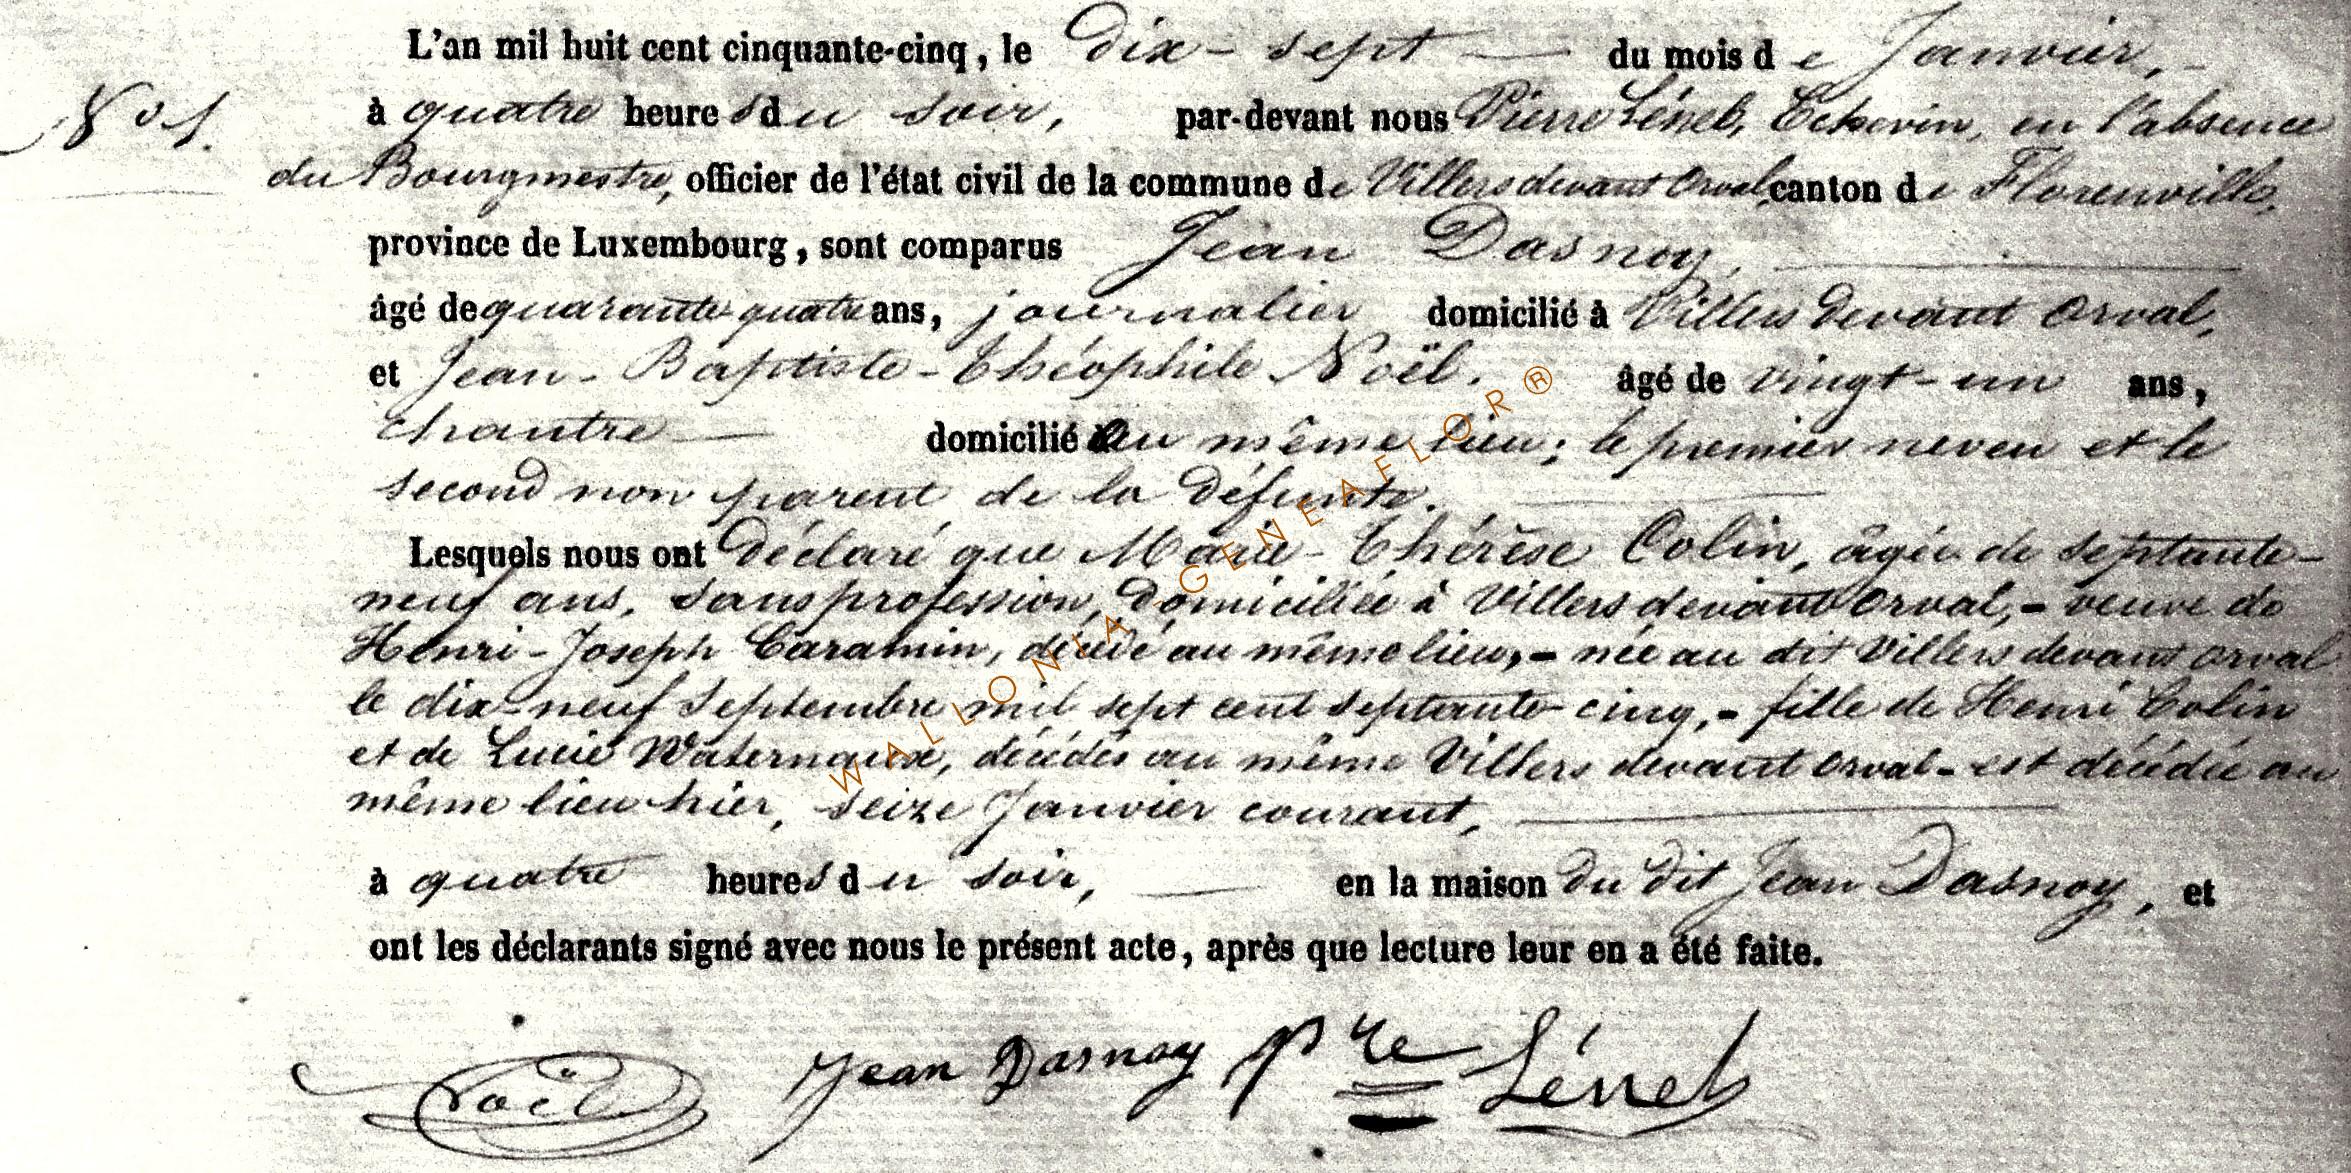 L'an mil huit cent cinquante-cinq, le dix-sept du mois de Janvier,
N° 1.
à quatre heures du soir, par-devant nous Pierre Lénel, Echevin, en l'absence
du Bourgmestre, officier de l'état civil de la commune de Villers devant Orval, canton de Florenville,
province de Luxembourg, sont comparus Jean Dasnoy,
âgé de quarante-quatre ans, journalier domicilié à Villers devant Orval,
et Jean-Baptiste-Théophile Noël. âgé de vingt-un ans,
chantre domicilié au même lieu; le premier neveu et le
second non parent de la défunte.
Lesquels nous ont déclaré que Marie-Thérèse Colin, âgée de septante-
neuf ans, sans profession, domiciliée à Villers devant Orval,- veuve de
Henri-Joseph Caramin, décédé au même lieu,- née au dit Villers devant Orval
le dix-neuf Septembre mil sept cent septante cinq,- fille de Henri Colin
et de Lucie Waternaux, décédés au même Villers devant Orval- est décédée au
même lieu hier, seize Janvier courant,
à quatre heures du soir, en la maison du dit Jean Dasnoy, et
ont les déclarants signé avec nous le présent acte, après que lecture leur en a été faite.
Noël Jean Dasnoy Pre Lénel
WALLONIA GENEAFLOR®